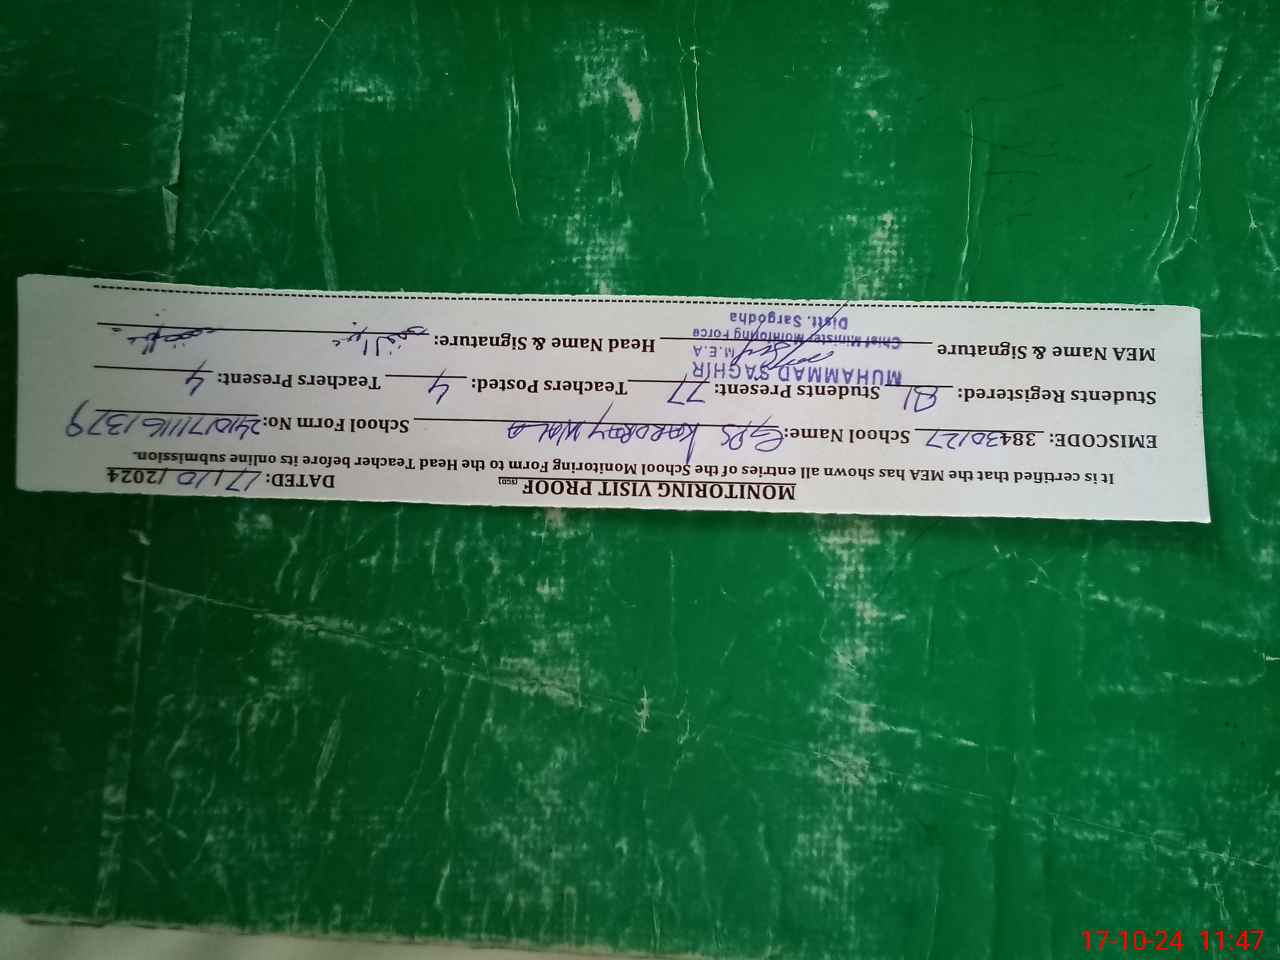 MONITORING VISIT PROOF (SED) DATED: 17/10/2024
It is certified that the MEA has shown all entries of the School Monitoring Form to the Head Teacher before its online submission.
EMISCODE: 38430127 School Name: GPS School Form No:
Students Registered: 81 Students Present: 77 Teachers Posted: 4 Teachers Present: 4
MEA Name & Signature Head Name & Signature:
MUHAMMAD SAGHIR
M.E.A
Chief Minister Monitoring Force
Distt. Sargodha
17-10-24 11:47